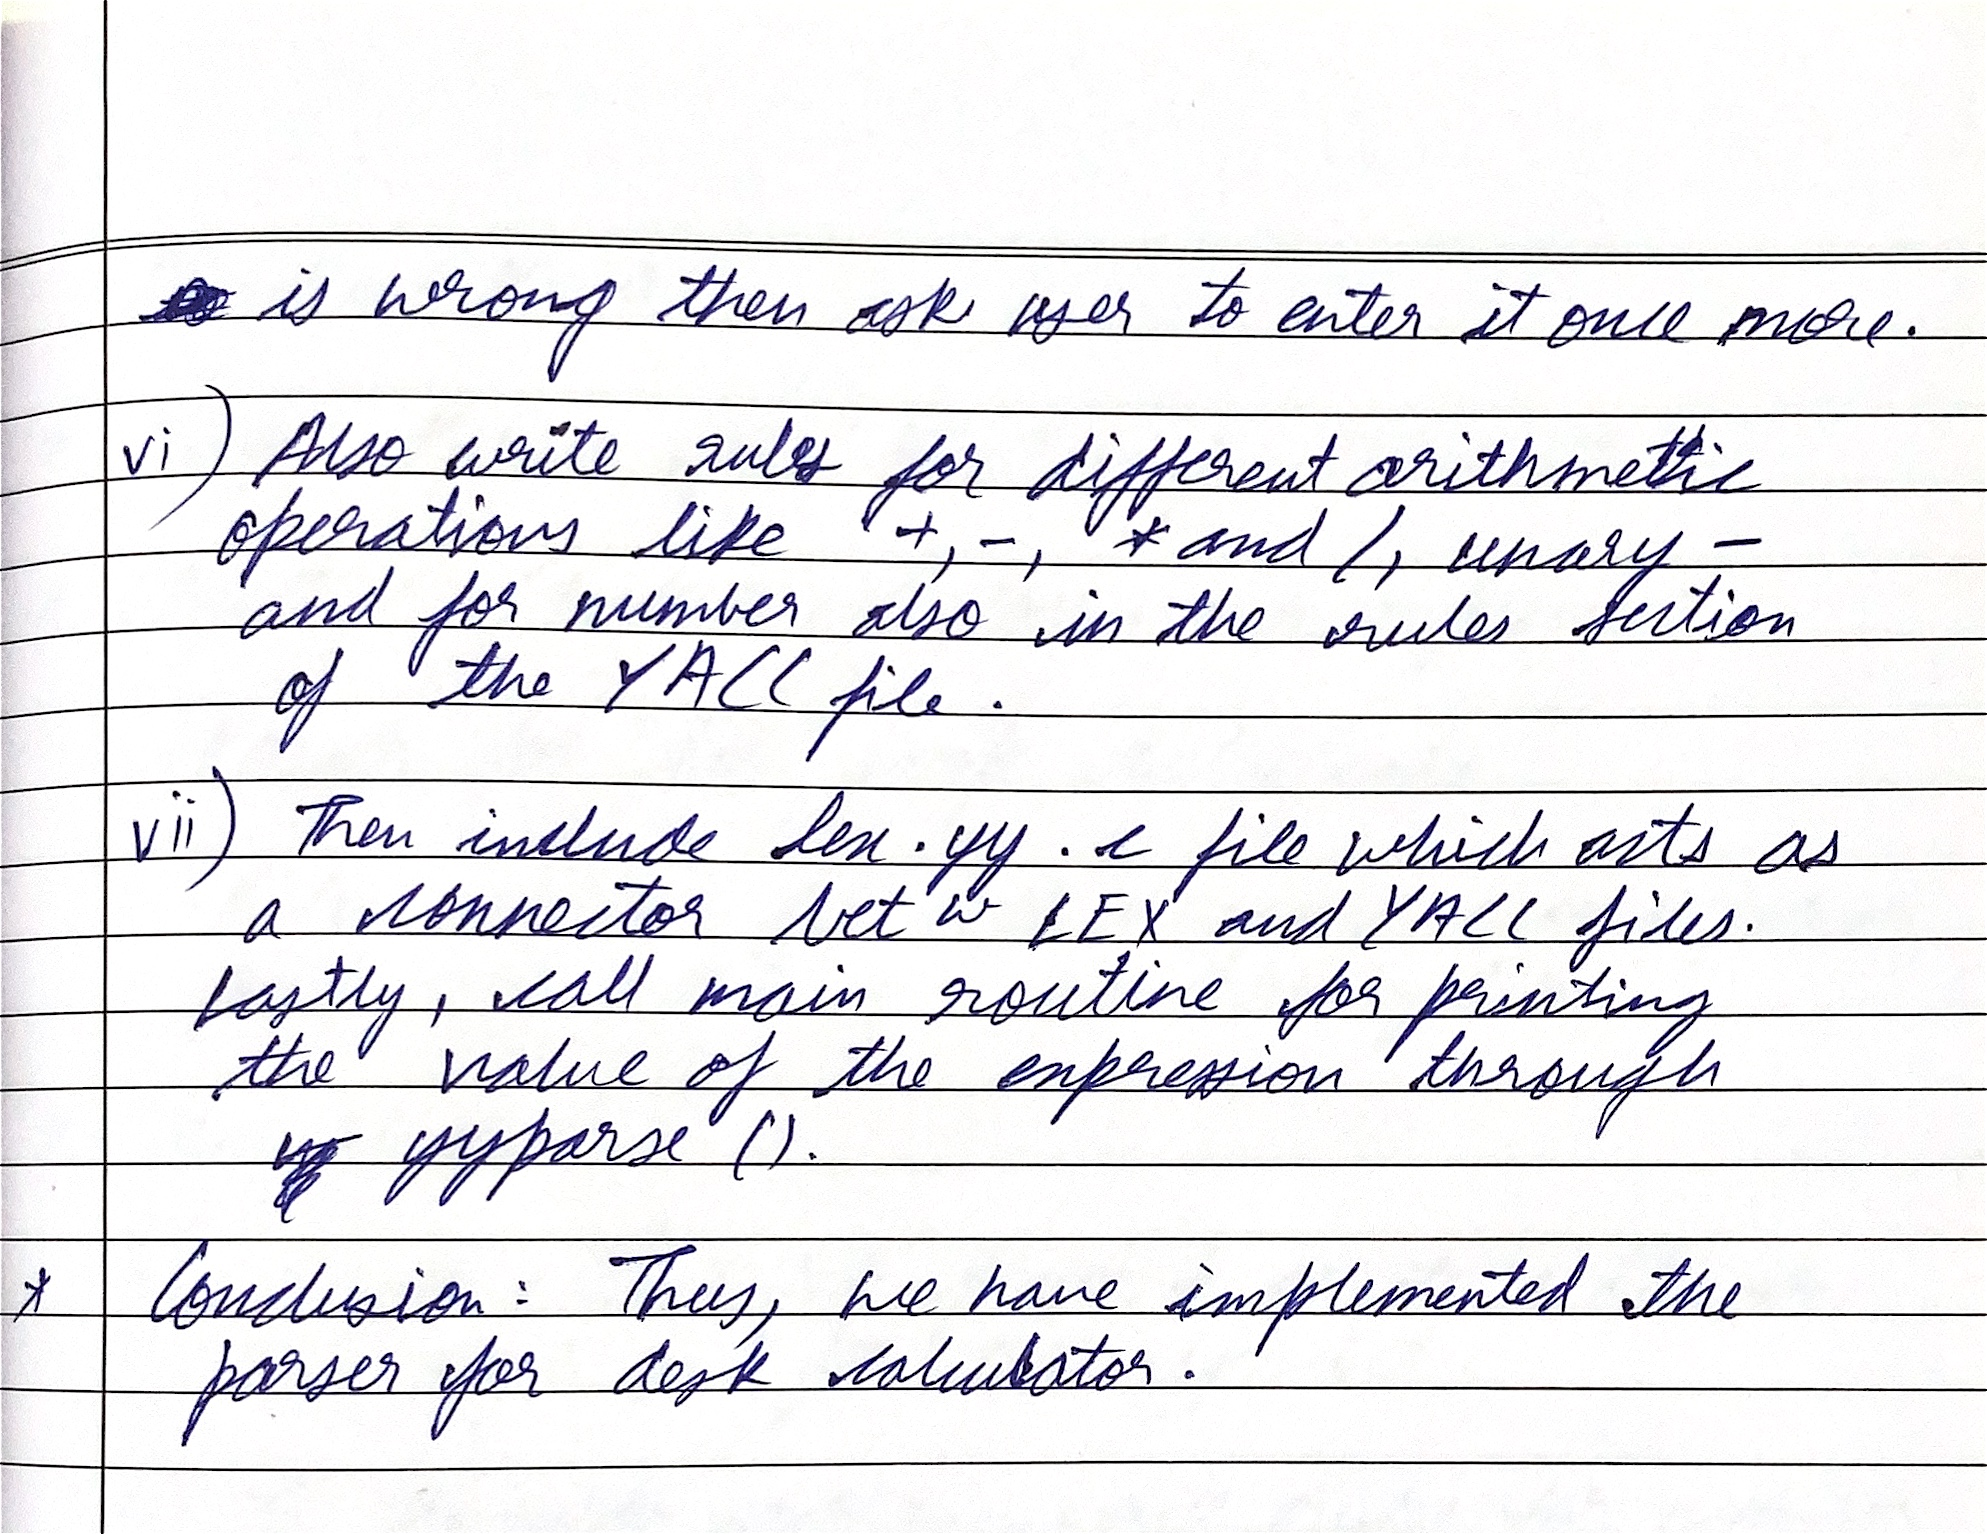 is wrong then ask user to enter it once more.
vi) Also write rules for different arithmetic
operations like +, -, * and /, unary -
and for number also in the rules section
of the YACC file.
vii) Then include lex.yy.c file which acts as
a connector betw LEX and YACC files.
Lastly, call main routine for printing
the value of the expression through
yyparse ().
* Conclusion: Thus, we have implemented the
parser for desk calculator.